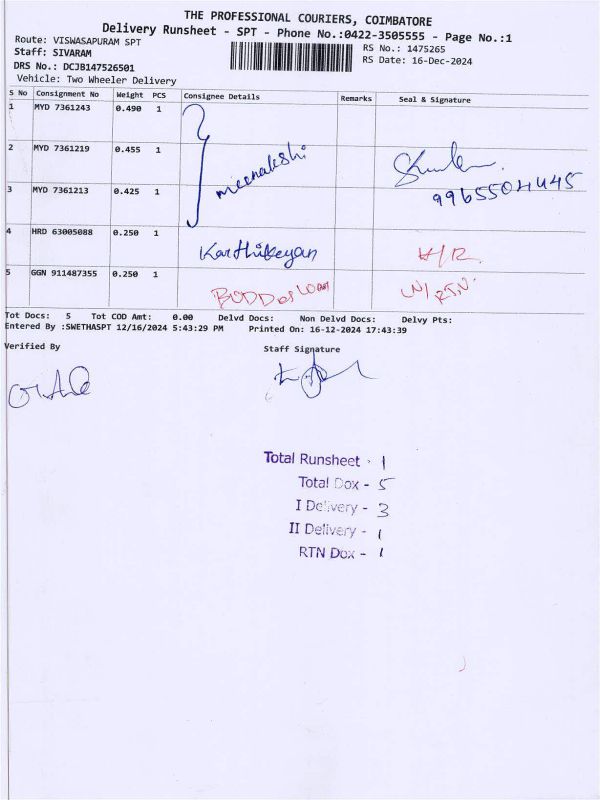 THE PROFESSIONAL COURIERS, COIMBATORE
Delivery Runsheet - SPT - Phone No.:0422-3505555 - Page No.:1
Route: VISWASAPURAM SPT
RS No.: 1475265
Staff: SIVARAM
RS Date: 16-Dec-2024
DRS No.: DCJB147526501
Vehicle: Two Wheeler Delivery
S No Consignment No Weight PCS Consignee Details Remarks Seal & Signature
1 MYD 7361243 0.490 1
2 MYD 7361219 0.455 1 meenakshi
3 MYD 7361213 0.425 1 9965504445
4 HRD 63005088 0.250 1 Karthikeyan
5 GGN 911487355 0.250 1
Tot Docs: 5 Tot COD Amt: 0.00 Delvd Docs: Non Delvd Docs: Delvy Pts:
Entered By :SWETHASPT 12/16/2024 5:43:29 PM Printed On: 16-12-2024 17:43:39
Verified By Staff Signature
Total Runsheet - 1
Total Dox - 5
I Delivery - 3
II Delivery - 1
RTN Dox - 1